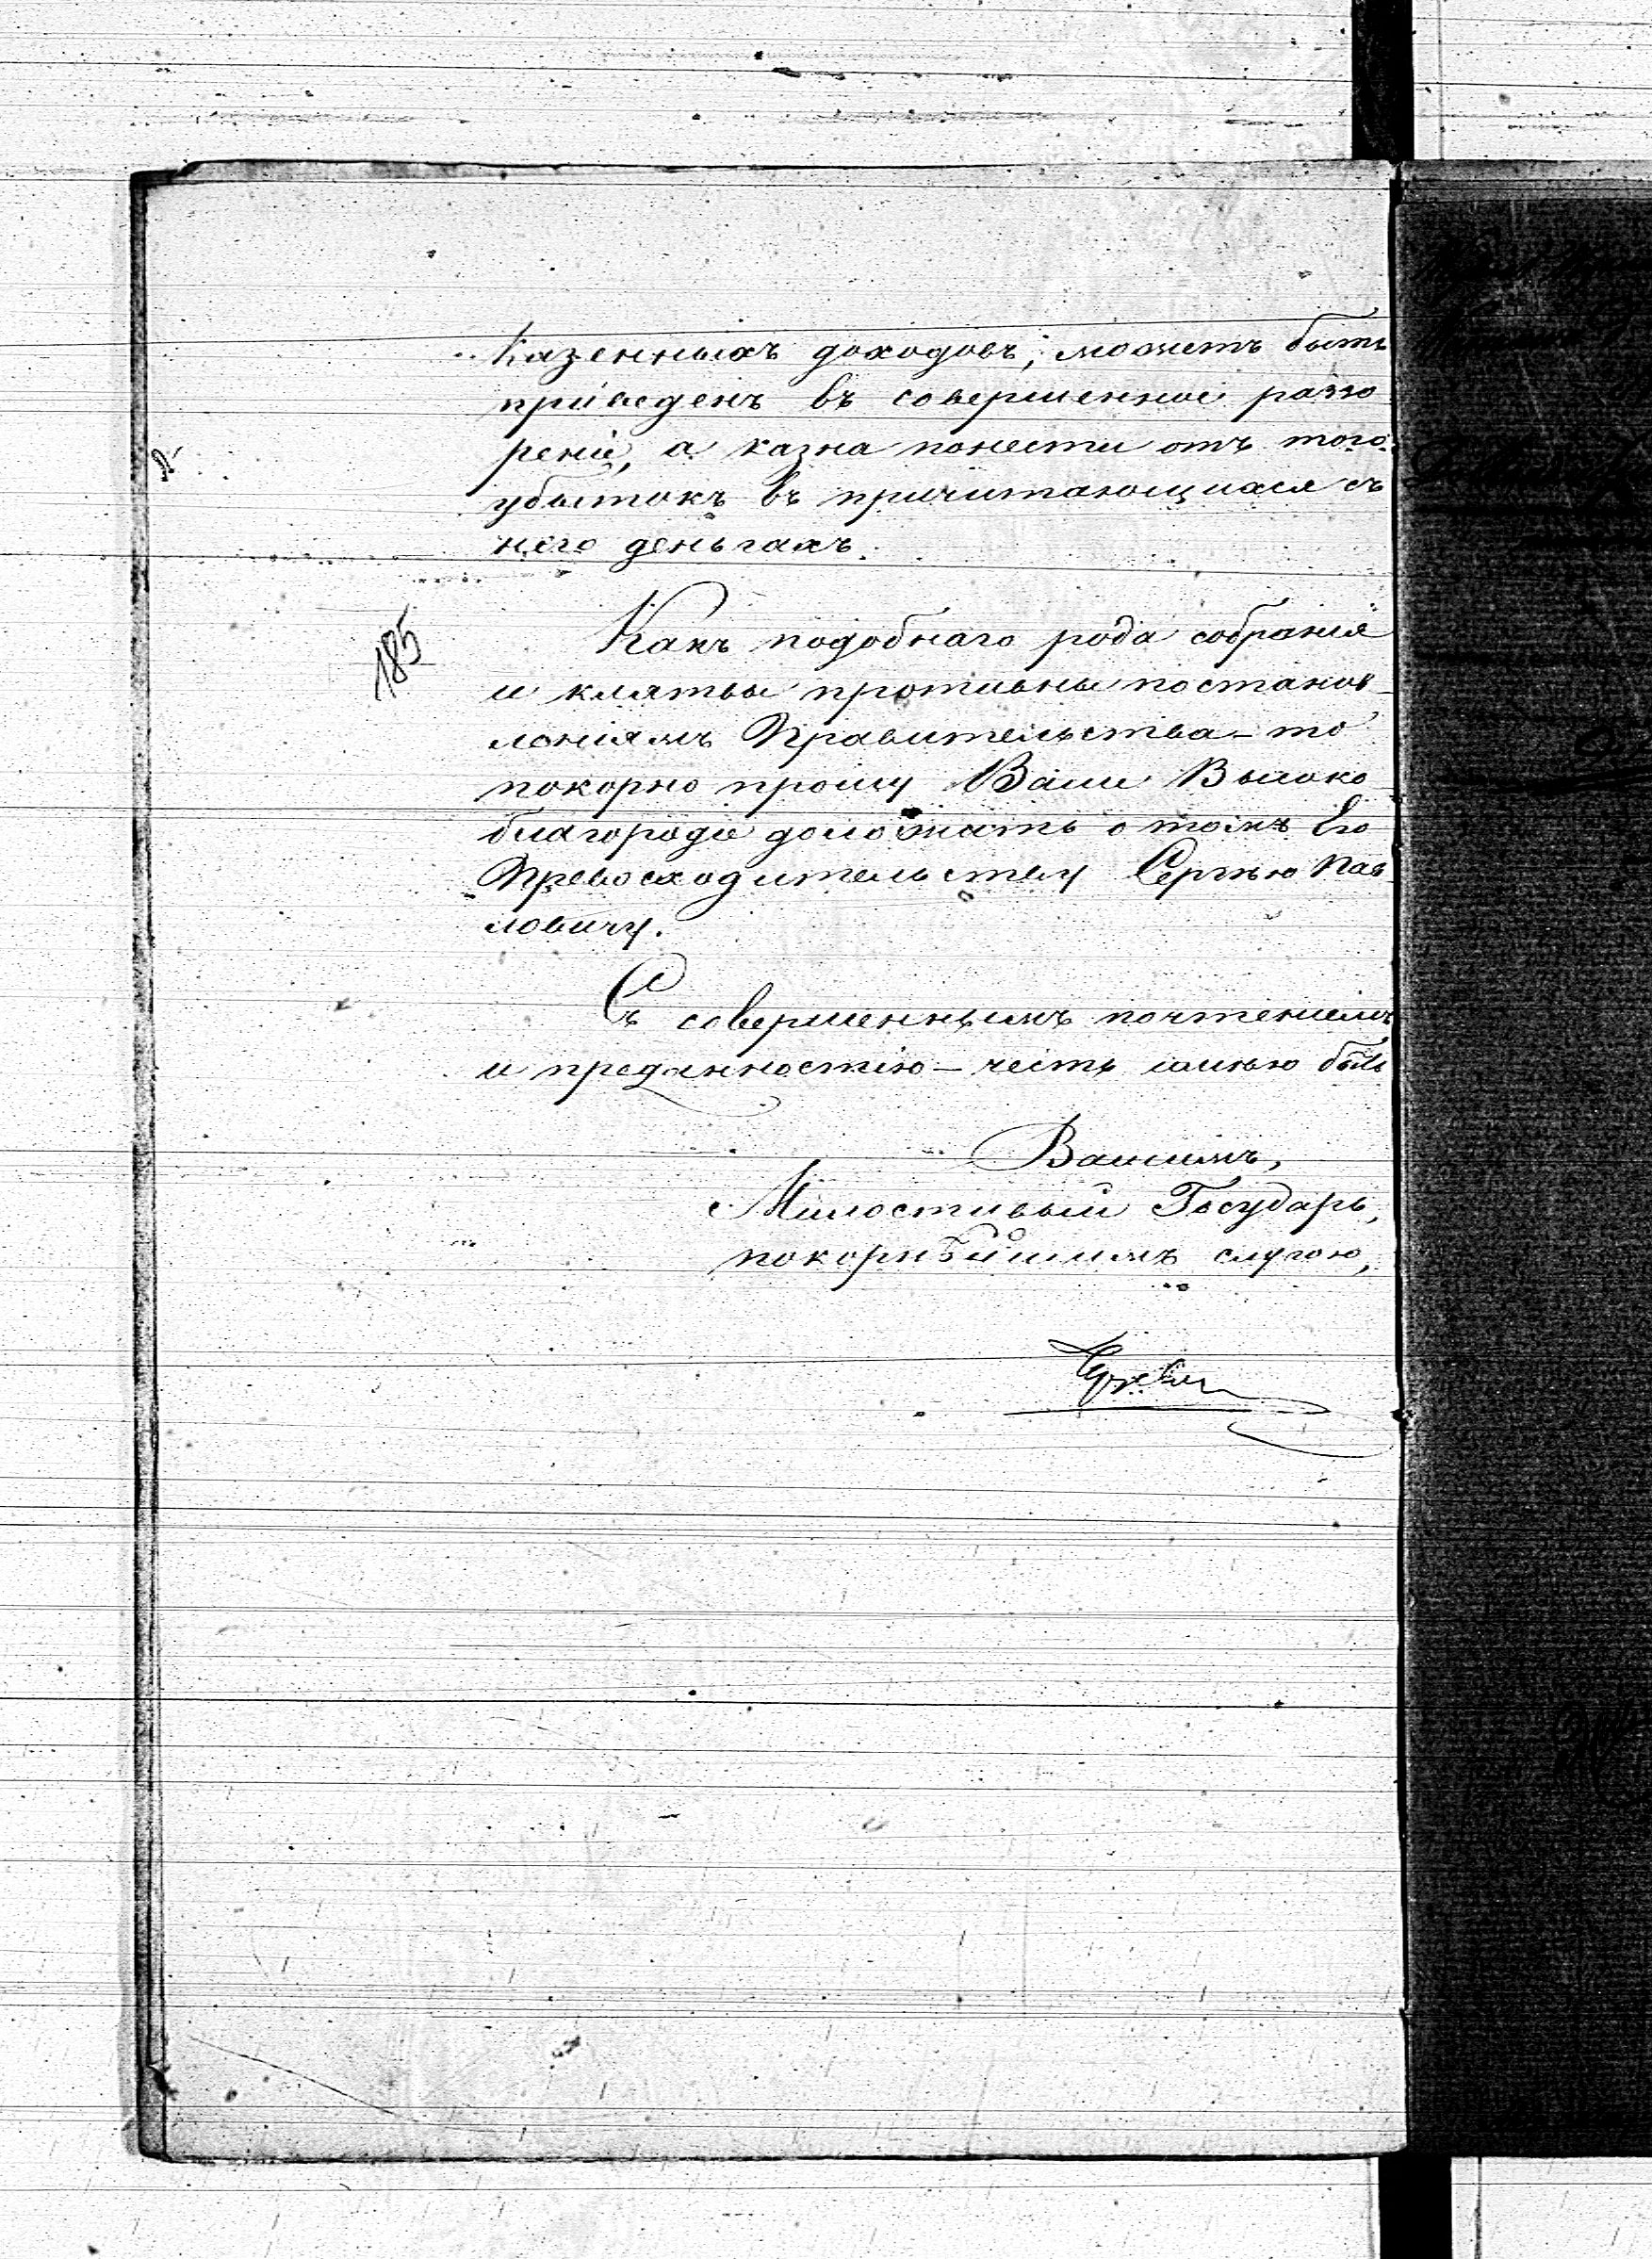 Казенныхъ доходовъ, можетъ быть
приведенъ въ совершенное раззо
реніе, а казна понести отъ того
убытокъ въ причитающихся съ
него деньгахъ.
185
Какъ подобнаго рода собранія
и клятвы противны постанов-
леніямъ Правительства – то
покорно прошу Ваше Высоко
благородіе доложить о томъ Его
Превосходительству Сергѣю Пав
ловичу.
Съ совершеннымъ почтеніемъ
и преданностію – честь имѣю быть
Вашимъ,
Милостивый Государь,
покорнѣйшимъ слугою,